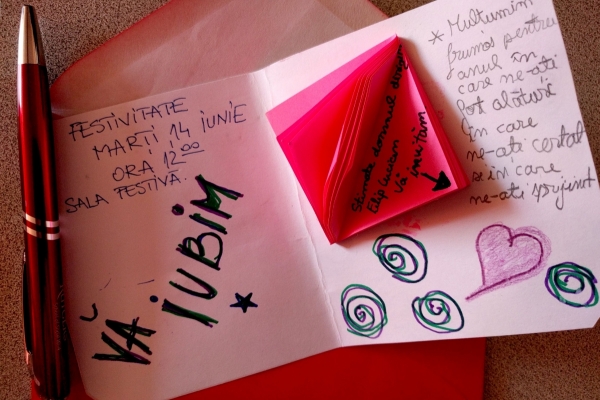 FESTIVITATE
MARȚI 14 IUNIE
ORA 12⁰⁰
SALA FESTIVĂ.
VĂ IUBIM
Stimate domnul
Filip Lucian
Vă invităm
Mulțumim
frumos pentru
anul în
care ne-ați
fot alături
În care
ne-ați certat
și în care
ne-ați sprijinit